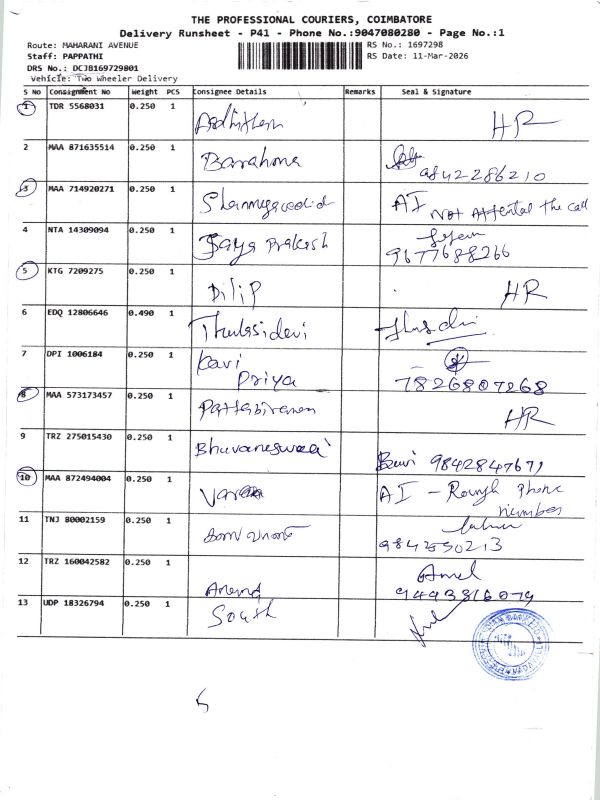 THE PROFESSIONAL COURIERS, COIMBATORE
Delivery Runsheet - P41 - Phone No.:9047080280 - Page No.:1
Route: MAHARANI AVENUE RS No.: 1697298
Staff: PAPPATHI RS Date: 11-Mar-2026
DRS No.: DCJB169729801
Vehicle: Two Wheeler Delivery
S No Consignment No Weight PCS Consignee Details Remarks Seal & Signature
1 TDR 5568031 0.250 1 HR
2 MAA 871635514 0.250 1 Barahona
9842286210
3 MAA 714920271 0.250 1 AI Not Attented the call
4 NTA 14309094 0.250 1 Jaya Prakash
9677688266
5 KTG 7209275 0.250 1 Dilip HR
6 EDQ 12806646 0.490 1 Thulasidevi
7 DPI 1006184 0.250 1 Kavi
Priya 7826807268
8 MAA 573173457 0.250 1 Pattabiraman HR
9 TRZ 275015430 0.250 1 Bhuvaneswari
Buvi 9842847671
10 MAA 872494004 0.250 1 AI - Rough Phone
number
11 TNJ 80002159 0.250 1
9842550213
12 TRZ 160042582 0.250 1 Anand
9493816079
13 UDP 18326794 0.250 1 South
5